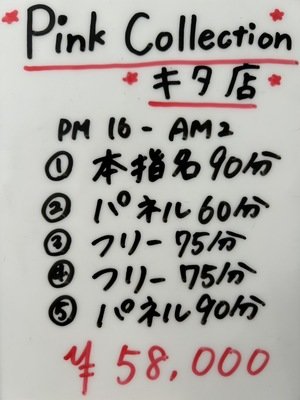 Pink Collection
キタ店
PM 16 - AM2
① 本指名90分
② パネル60分
③ フリー75分
④ フリー75分
⑤ パネル90分
¥58,000